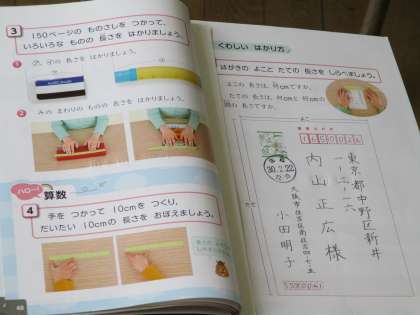 3
150ページの ものさしを つかって、
いろいろな ものの 長さを はかりましょう。
1 あ、いの 長さを はかりましょう。
2 みの まわりの ものの 長さを はかりましょう。
ハロー! 算数
4
手を つかって 10cmを つくり、
だいたい 10cmの 長さを おぼえましょう。
48
くわしい はかり方
はがきの よこと たての 長さを しらべましょう。
よこの 長さは、何cmですか。
たての 長さは、何cmと 何cmの
間の 長さですか。
よこ
たて
東京都中野区新井
一-六-一六
内山正広様
小田明子